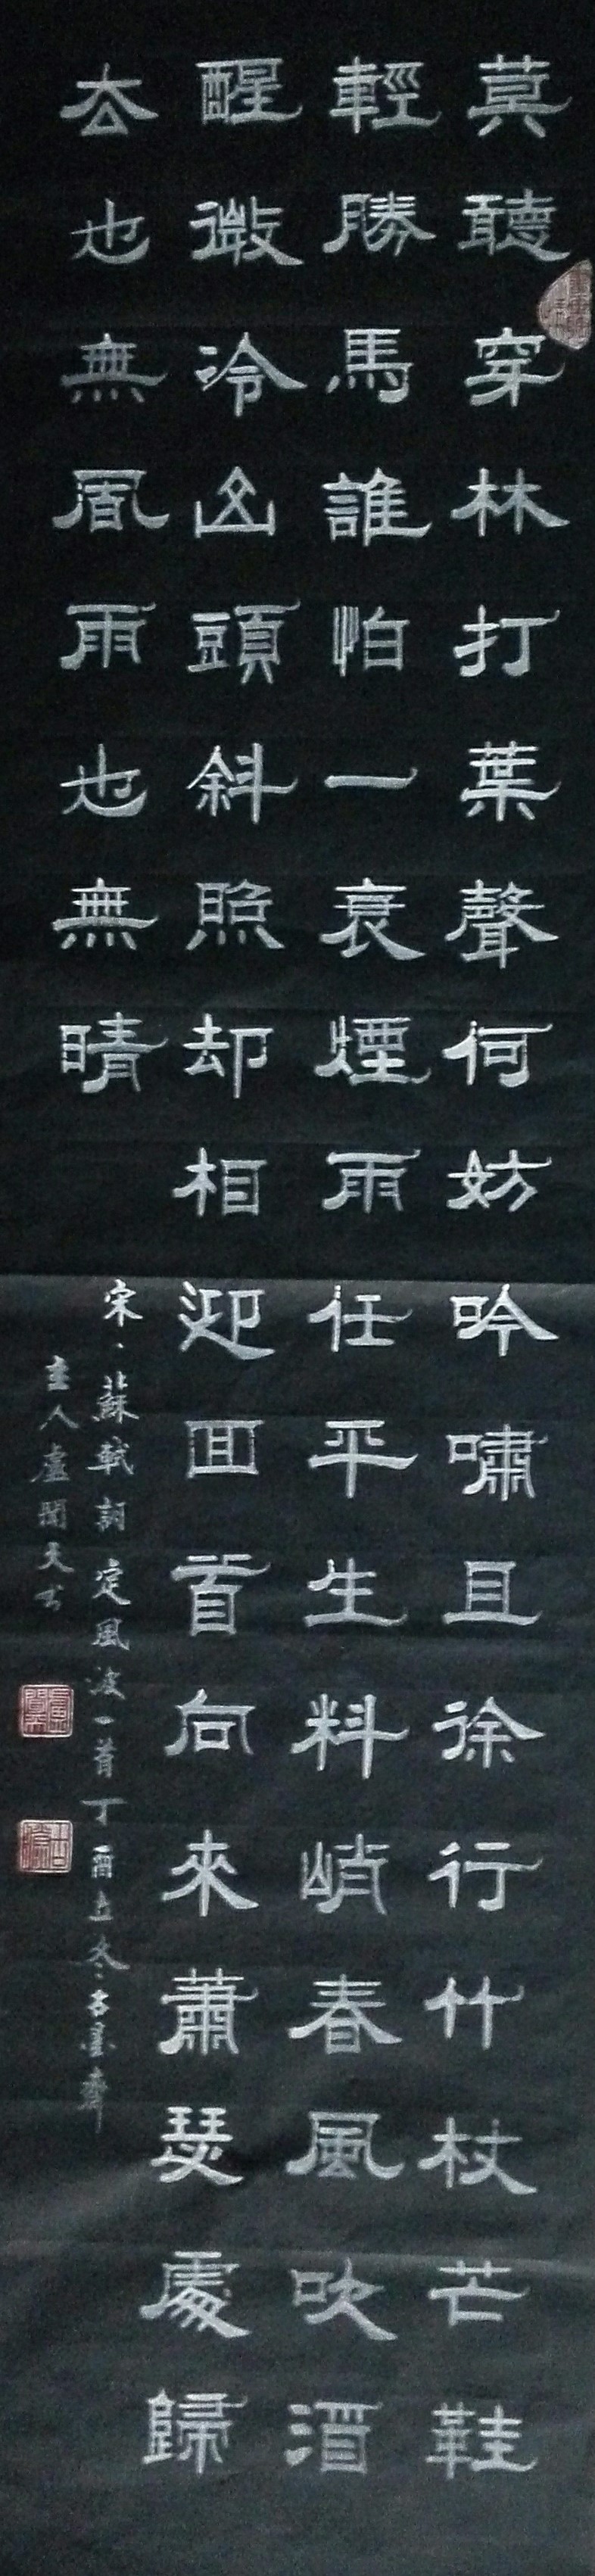 莫聽穿林打葉聲何妨吟嘯且徐行竹杖芒鞋
輕勝馬誰怕一衰煙雨任平生料峭春風吹酒
醒微冷山頭斜照却相迎回首向來蕭瑟處歸
去也無風雨也無晴
宋、蘇軾詞定風波一首丁酉立冬墨齋
主人盧聞天书